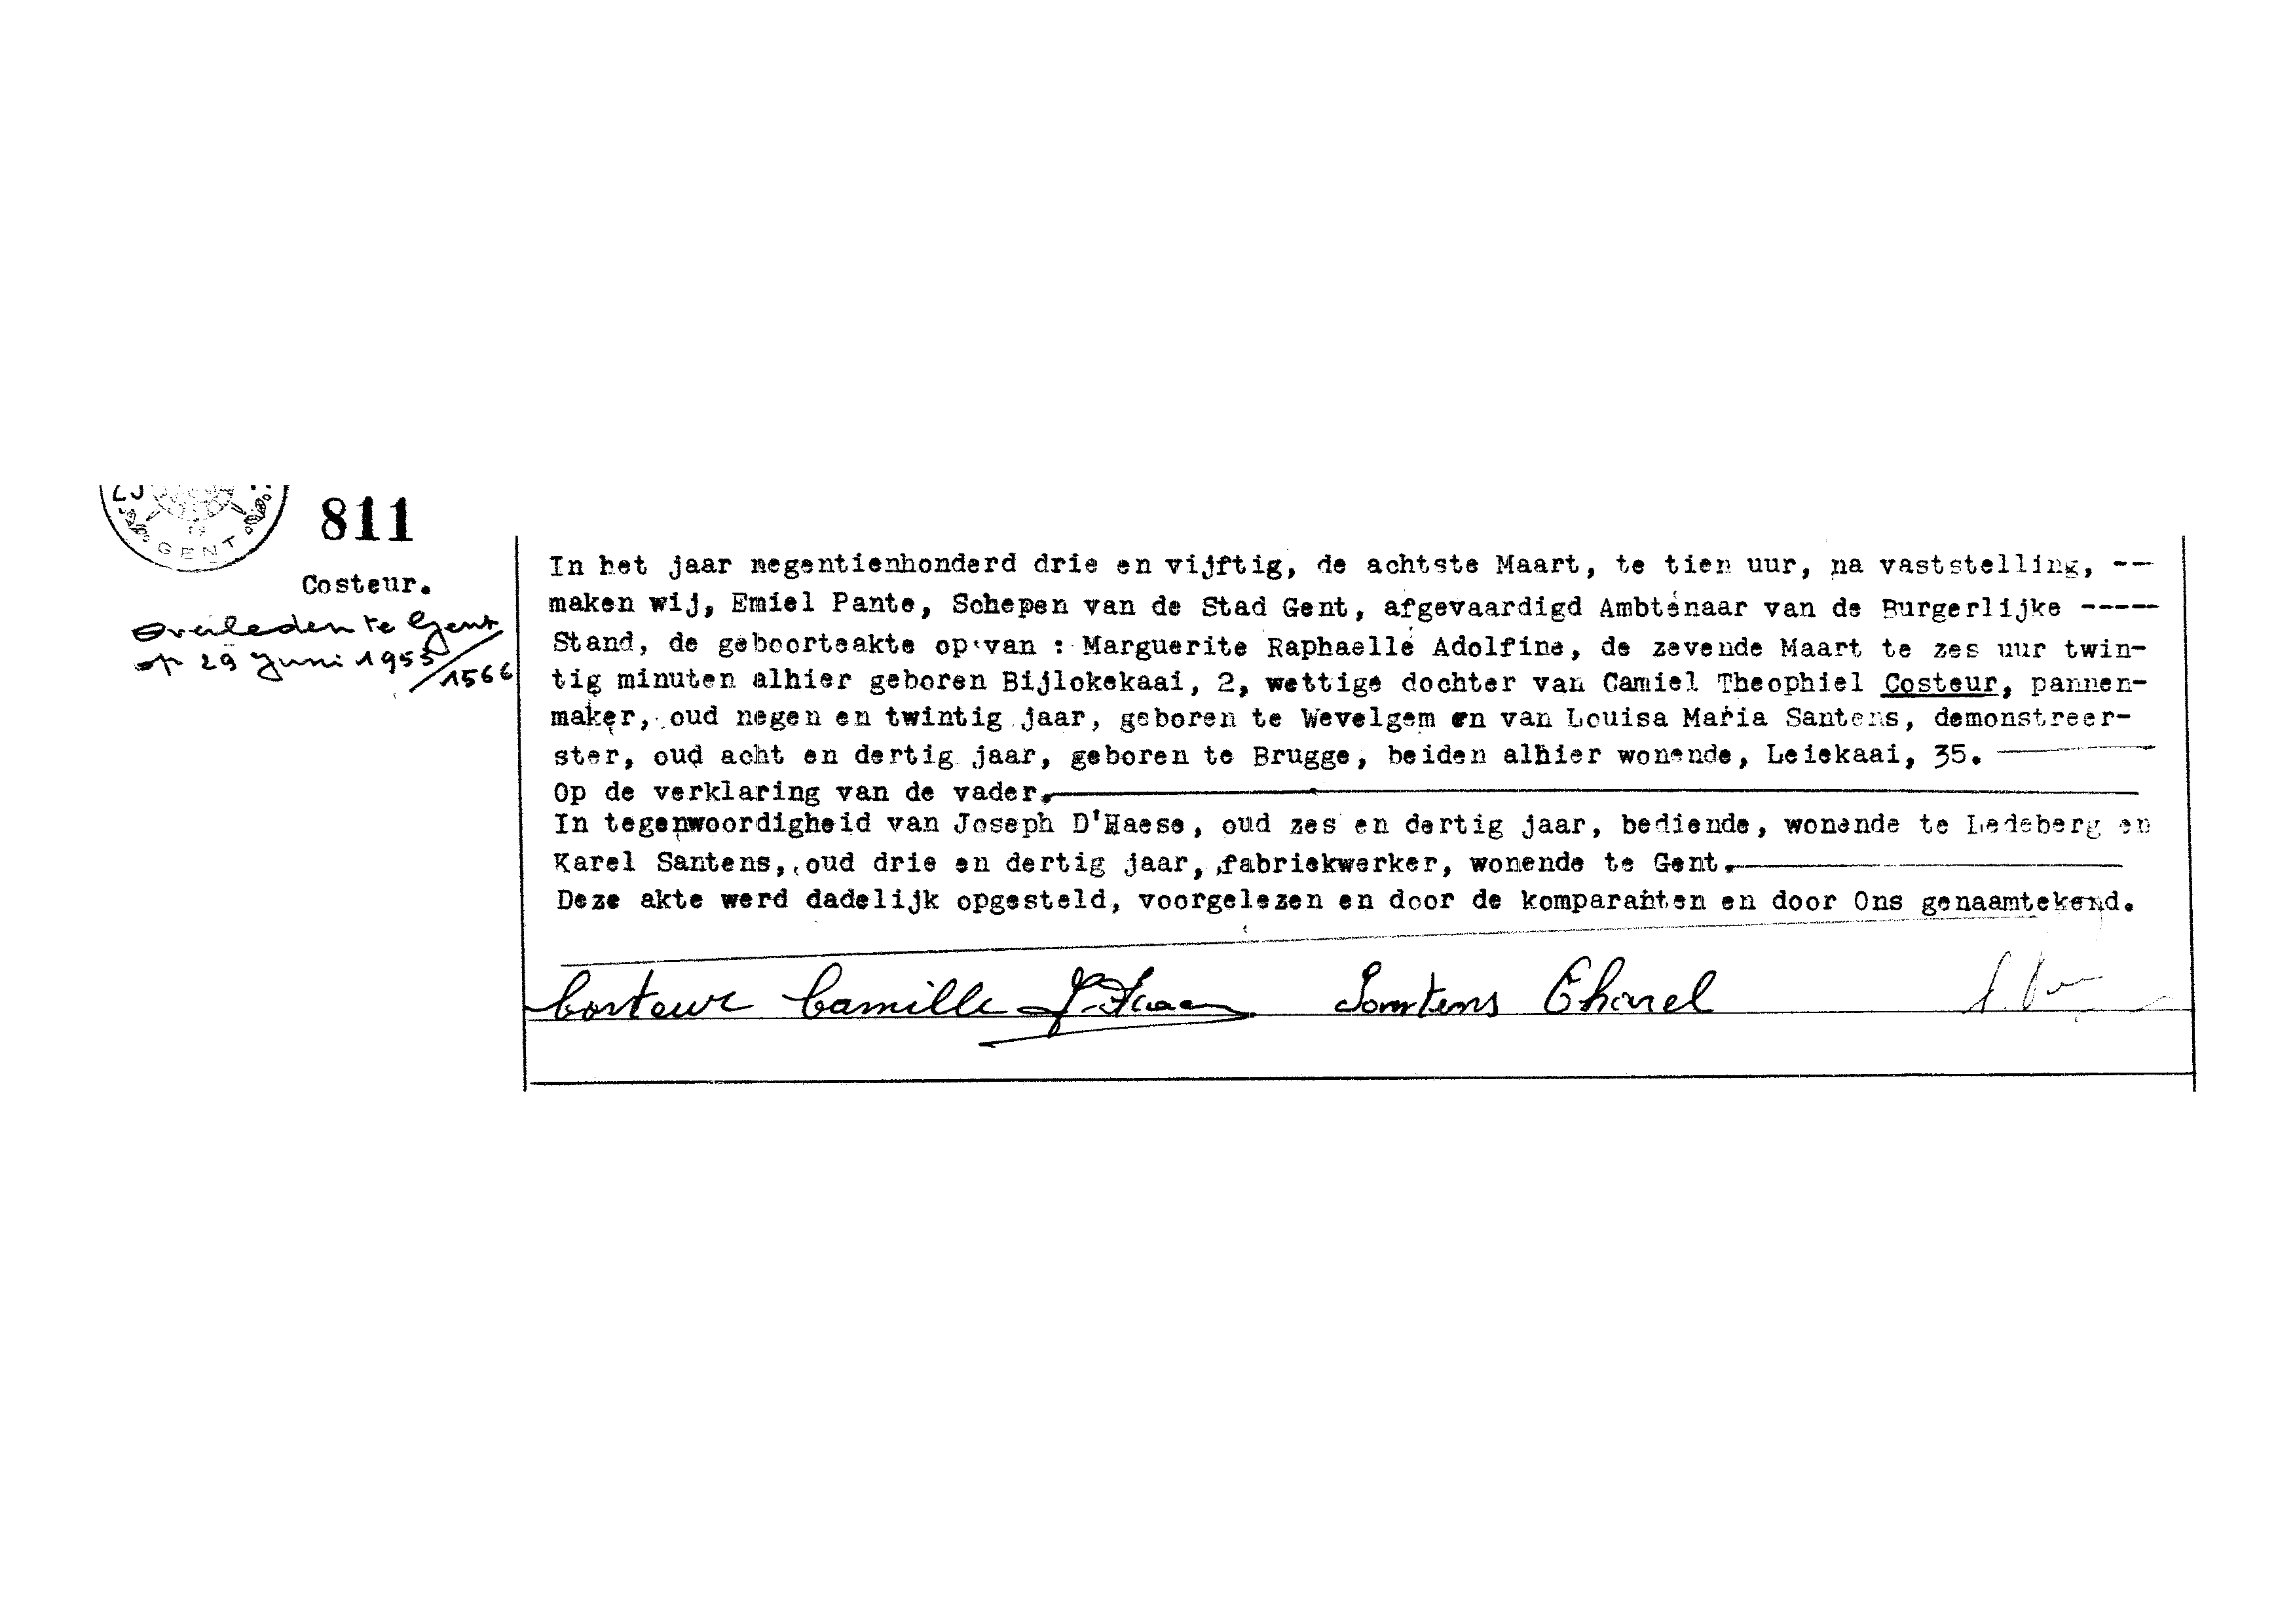 GENT
811
Costeur.
Overleden te Gent
op 29 Juni 1955
/1566
In het jaar negentienhonderd drie en vijftig, de achtste Maart, te tien uur, na vaststelling, --
maken wij, Emiel Pante, Schepen van de Stad Gent, afgevaardigd Ambtenaar van de Burgerlijke -----
Stand, de geboorteakte op van : Marguerite Raphaelle Adolfine, de zevende Maart te zes uur twin-
tig minuten alhier geboren Bijlokekaai, 2, wettige dochter van Camiel Theophiel Costeur, pannen-
maker, oud negen en twintig jaar, geboren te Wevelgem en van Louisa Maria Santens, demonstreer-
ster, oud acht en dertig jaar, geboren te Brugge, beiden alhier wonende, Leiekaai, 35.
Op de verklaring van de vader.
In tegenwoordigheid van Joseph D'Haese, oud zes en dertig jaar, bediende, wonende te Ledeberg en
Karel Santens, oud drie en dertig jaar, fabriekwerker, wonende te Gent.
Deze akte werd dadelijk opgesteld, voorgelezen en door de komparanten en door Ons genaamtekend.
Costeur Camille J. D'Haese Santens Charel